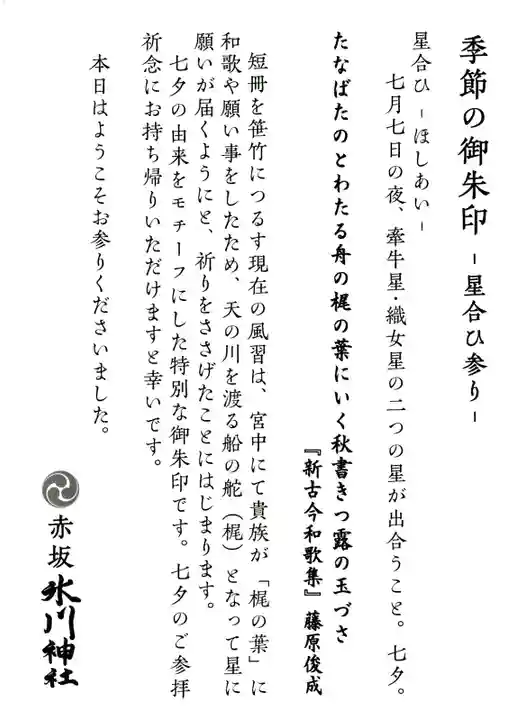 季節の御朱印 -星合ひ参り-
星合ひ -ほしあい-
七月七日の夜、牽牛星・織女星の二つの星が出合うこと。七夕。
たなばたのとわたる舟の梶の葉にいく秋書きつ露の玉づさ
『新古今和歌集』藤原俊成
短冊を笹竹につるす現在の風習は、宮中にて貴族が「梶の葉」に
和歌や願い事をしたため、天の川を渡る船の舵（梶）となって星に
願いが届くようにと、祈りをささげたことにはじまります。
七夕の由来をモチーフにした特別な御朱印です。七夕のご参拝
祈念にお持ち帰りいただけますと幸いです。
本日はようこそお参りくださいました。
赤坂 氷川神社